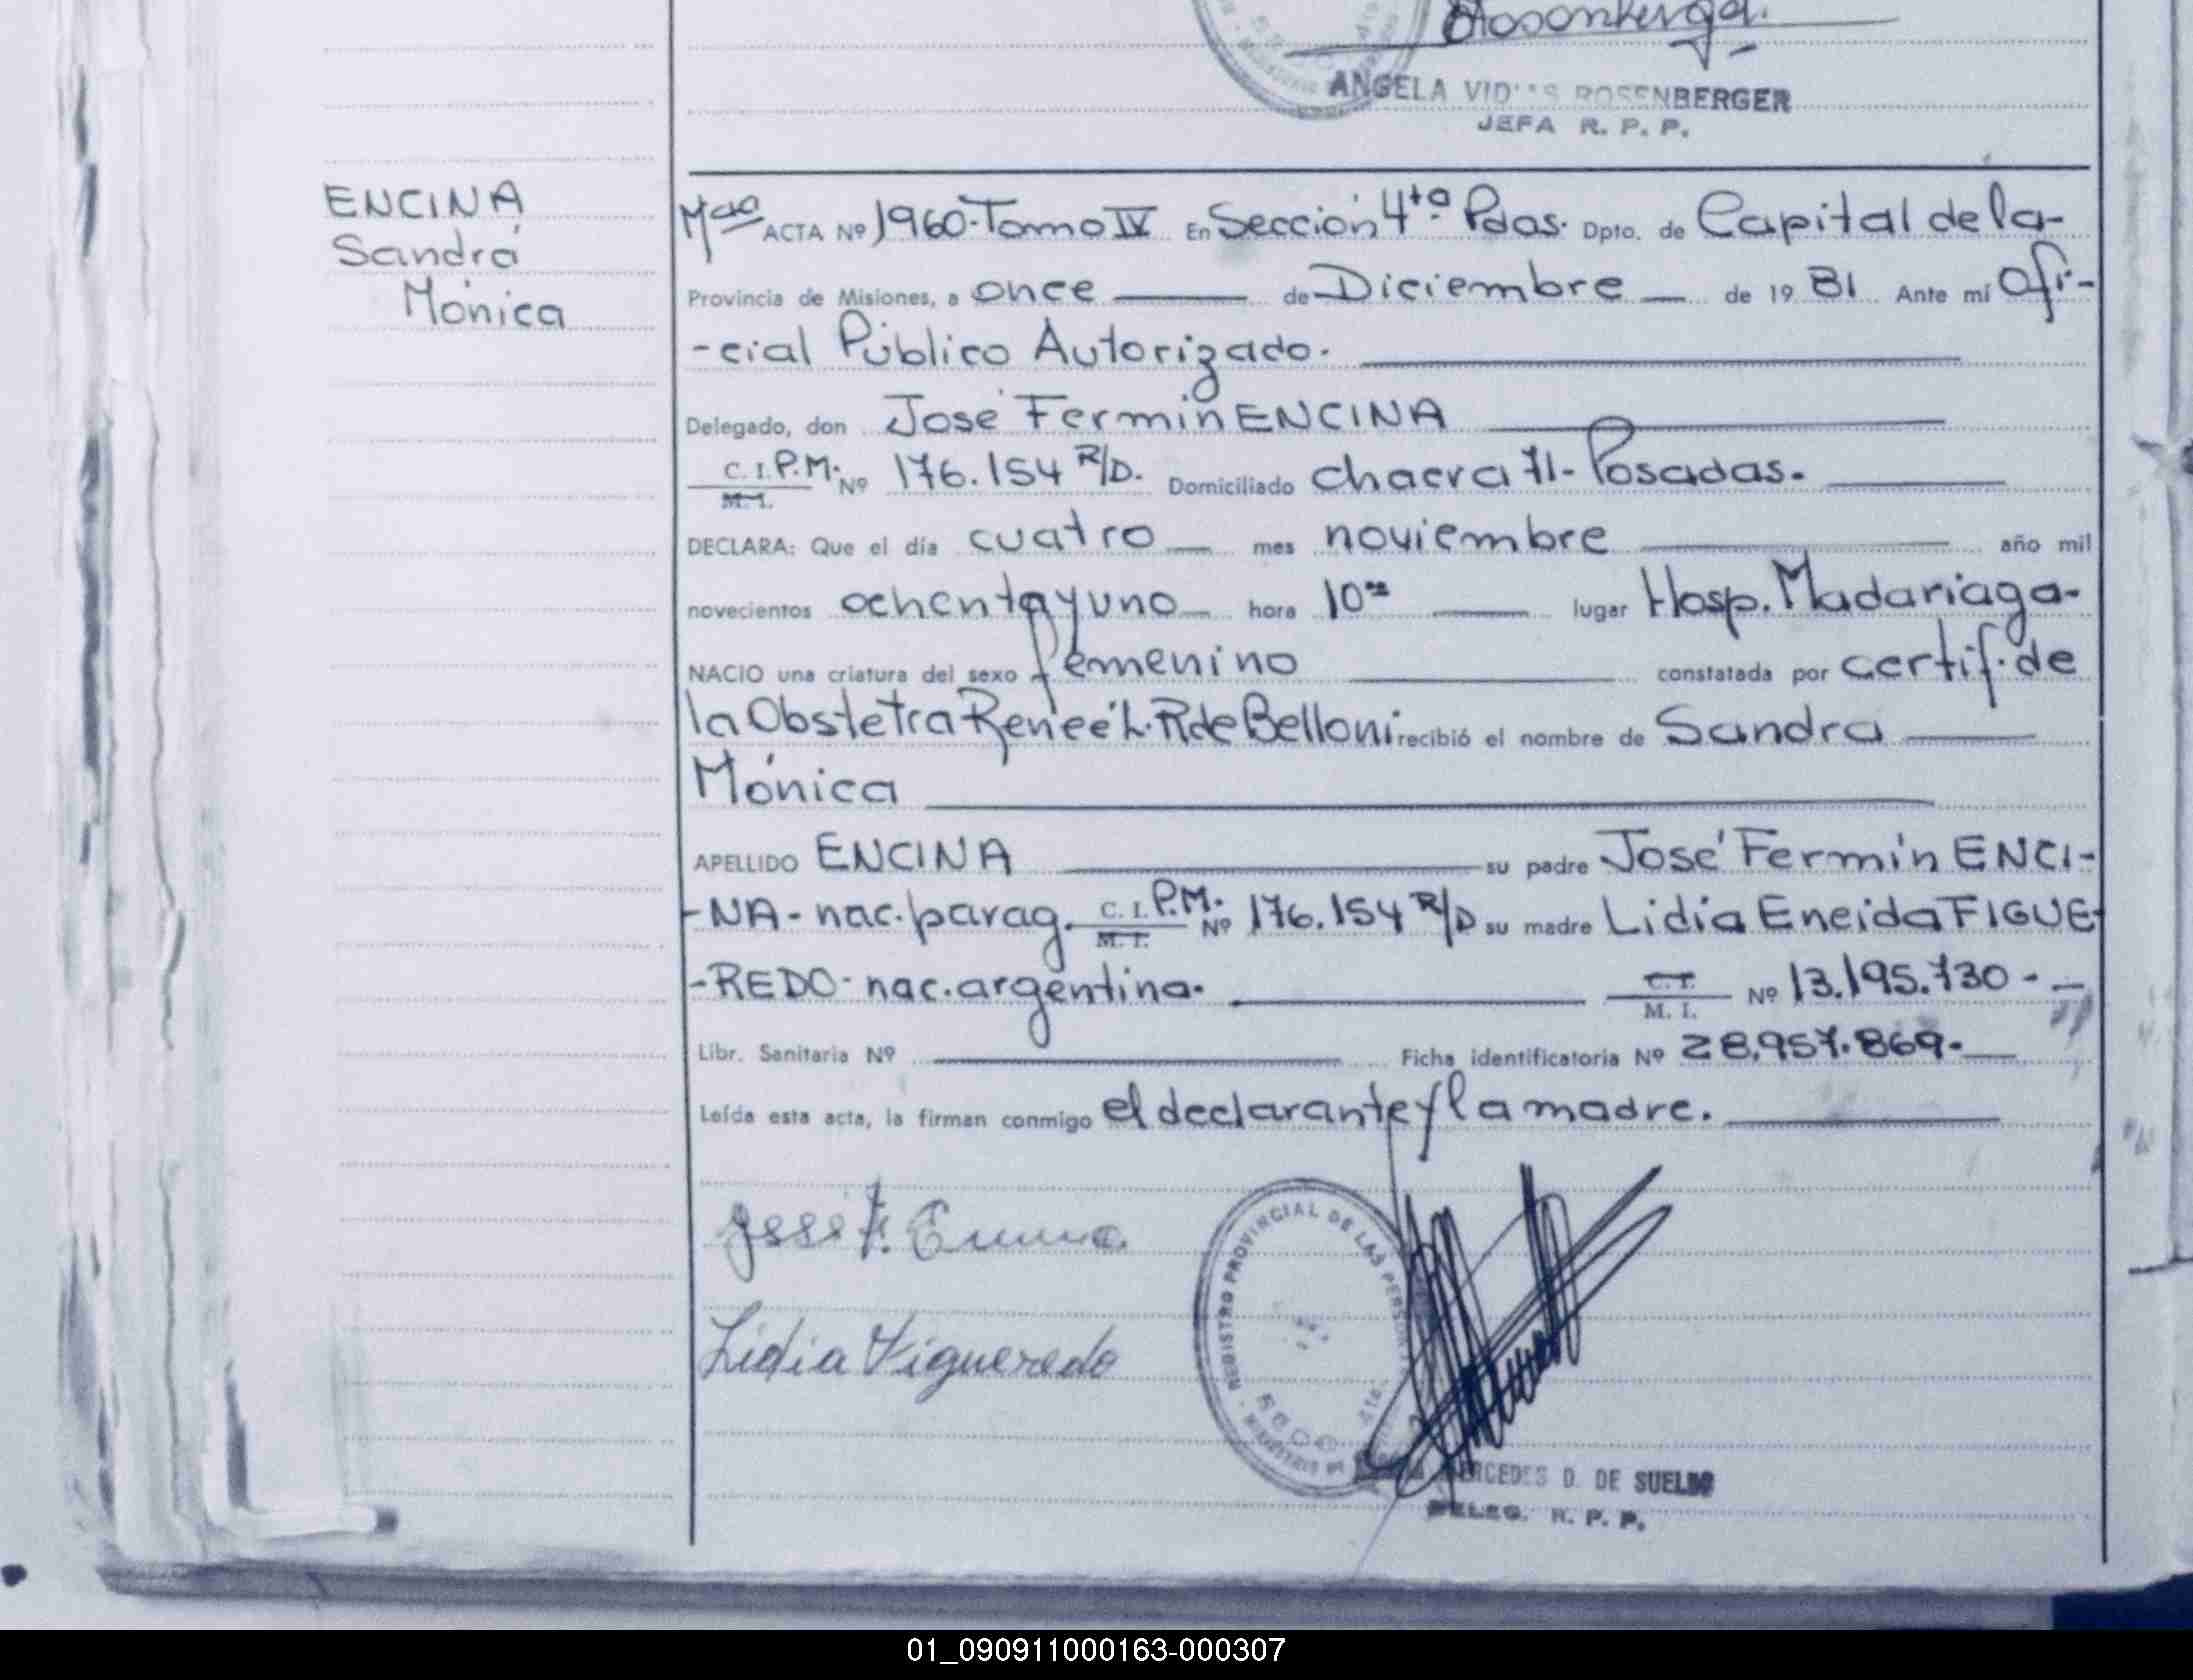 Rosenberger
ANGELA VID S ROSENBERGER
JEFA R. P. P.
ENCINA
Sandra
Mónica
ACTA Nº 1960-Tomo IV En Sección 4ta Pdas. Dpto. de Capital de la-
Provincia de Misiones, a once de Diciembre de 19 81 Ante mí Ofi-
-cial Público Autorizado.
Delegado, don José Fermín ENCINA
C. I. P.M. Nº 176.154 R/D. Domiciliado chacra 71- Posadas.
M. I.
DECLARA: Que el día cuatro mes noviembre año mil
novecientos ochenta y uno hora 10 lugar Hosp. Madariaga-
NACIO una criatura del sexo femenino constatada por certif. de
la Obstetra Reneé L. R de Belloni recibió el nombre de Sandra
Mónica
APELLIDO ENCINA su padre José Fermín ENCI-
-NA- nac. parag. C. I. P.M. Nº 176.154 R/D su madre Lidia Eneida FIGUE-
M. I.
-REDO- nac. argentina. C. I. Nº 13.195.730-
M. I.
Libr. Sanitaria Nº Ficha identificatoria Nº 28.957.869-
Leída esta acta, la firman conmigo el declarante y la madre.
José F. Encina
Lidia Figueredo
REGISTRO PROVINCIAL DE LAS PERSONAS
MERCEDES D. DE SUELDO
DELEG. R. P. P.
01_090911000163-000307